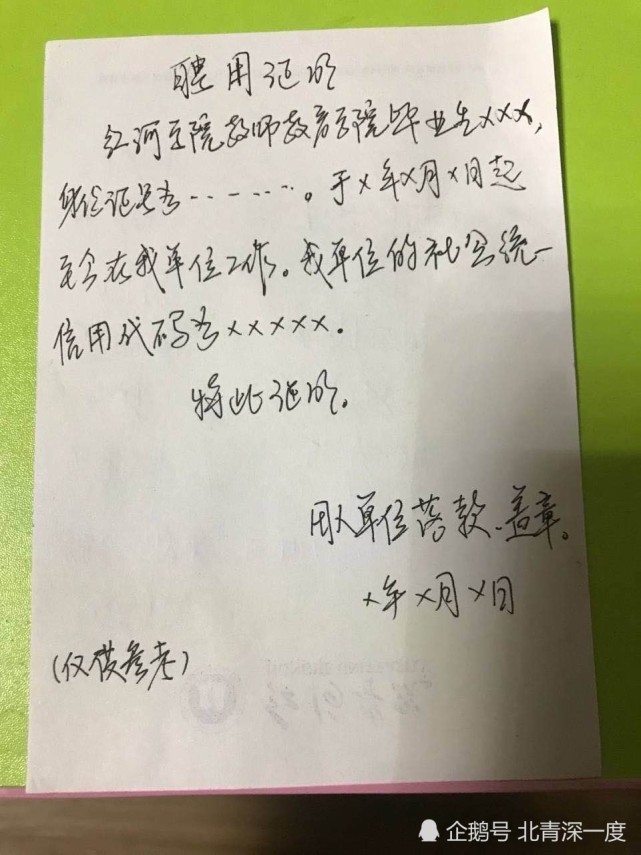 聘用证明
红河学院教师教育学院毕业生xxx,
身份证号为-------。于x年x月x日起
至今在我单位工作。我单位的社会统一
信用代码为xxxxx.
特此证明。
用人单位落款、盖章。
x年x月x日
(仅供参考)
企鹅号 北青深一度